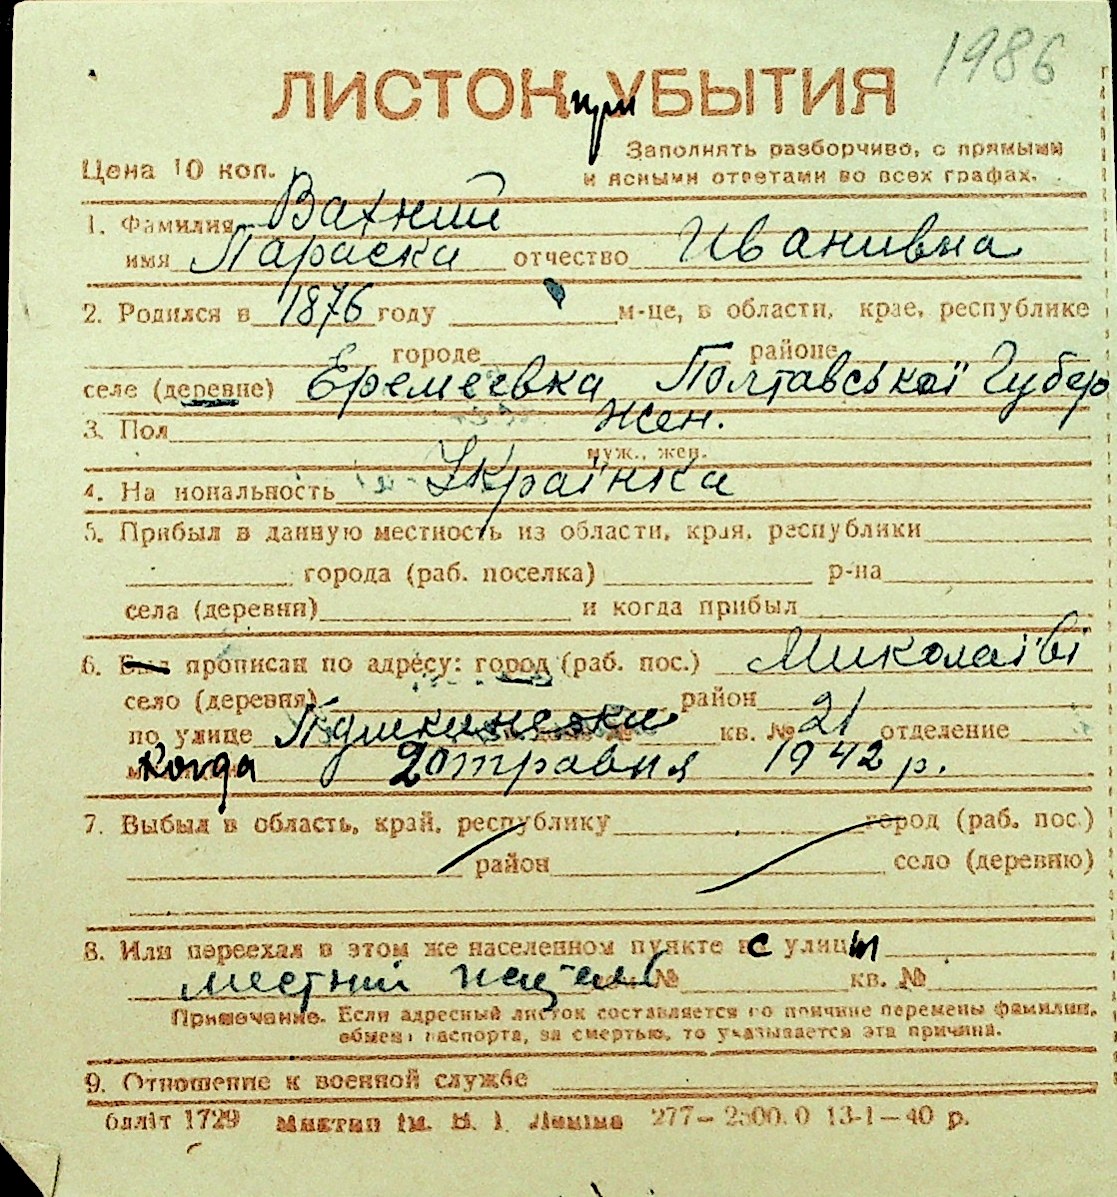 1986
ЛИСТОК при УБЫТИЯ
Заполнять разборчиво, с прямыми
Цена 10 коп.
и ясными ответами во всех графах.
1. Фамилия Вахний
имя Параска отчество Иванивна
2. Родился в 1876 году м-це, в области, крае, республике
городе районе
селе (деревне) Еремеевка Полтавської Губер
3. Пол жен.
муж., жен.
4. На иональность Українка
5. Прибыл в данную местность из области, края, республики
города (раб. поселка) р-на
села (деревни) и когда прибыл
6. Был прописан по адресу: город (раб. пос.) Миколаїві
село (деревня) район
по улице Пушкинская кв. № 21 отделение
Когда 20 травня 1942 р.
7. Выбыл в область, край, республику город (раб. пос.)
район село (деревню)
8. Или переехал в этом же населенном пункте с улицы
местний № кв. №
Примечание. Если адресный листок составляется по причине перемены фамилии,
обмена паспорта, за смертью, то указывается эта причина.
9. Отношение к военной службе
блліт 1729 ім. В. І. Леніна 277— 2500.0 13-1—40 р.